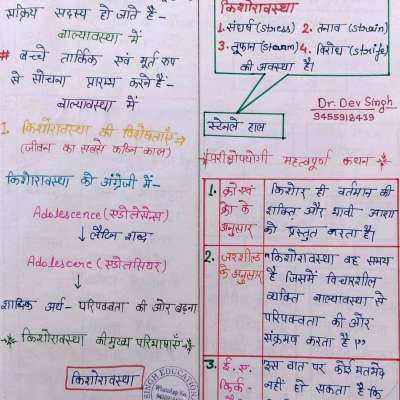 सक्रिय सदस्य हो जाते है-
बाल्यावस्था में
# बच्चे तार्किक एवं मूर्त रूप
से सोचना प्रारम्भ करने हैं-
बाल्यावस्था में
1. किशोरावस्था की विशेषताएँ→
(जीवन का सबसे कठिन काल)
किशोरावस्था को अंग्रेजी में-
Adolescence (एडोलेसेन्स)
↓ लैटिन शब्द
Adolescere (एडोलसियर)
↓
शाब्दिक अर्थ- परिपक्वता की ओर बढ़ना
किशोरावस्था की मुख्य परिभाषाएँ→
किशोरावस्था
SINGH EDUCATION
WhatsApp No.
किशोरावस्था
1. संघर्ष (stress) 2. तनाव (strain)
3. तूफान (storm) 4. विरोध (strife)
की अवस्था है।
Dr. Dev Singh
9455918439
स्टेनले हाल
→परीक्षोपयोगी महत्वपूर्ण कथन→
1. क्रो एवं क्रो के अनुसार
किशोर ही वर्तमान की
शक्ति और भावी आशा
को प्रस्तुत करता है।
2. जरशील्ड के अनुसार
"किशोरावस्था वह समय
है जिसमें विचारशील
व्यक्ति बाल्यावस्था से
परिपक्वता की ओर
संक्रमण करता है।"
3. ई. ए. किर्क-
इस बात पर कोई मतभेद
नहीं हो सकता है कि